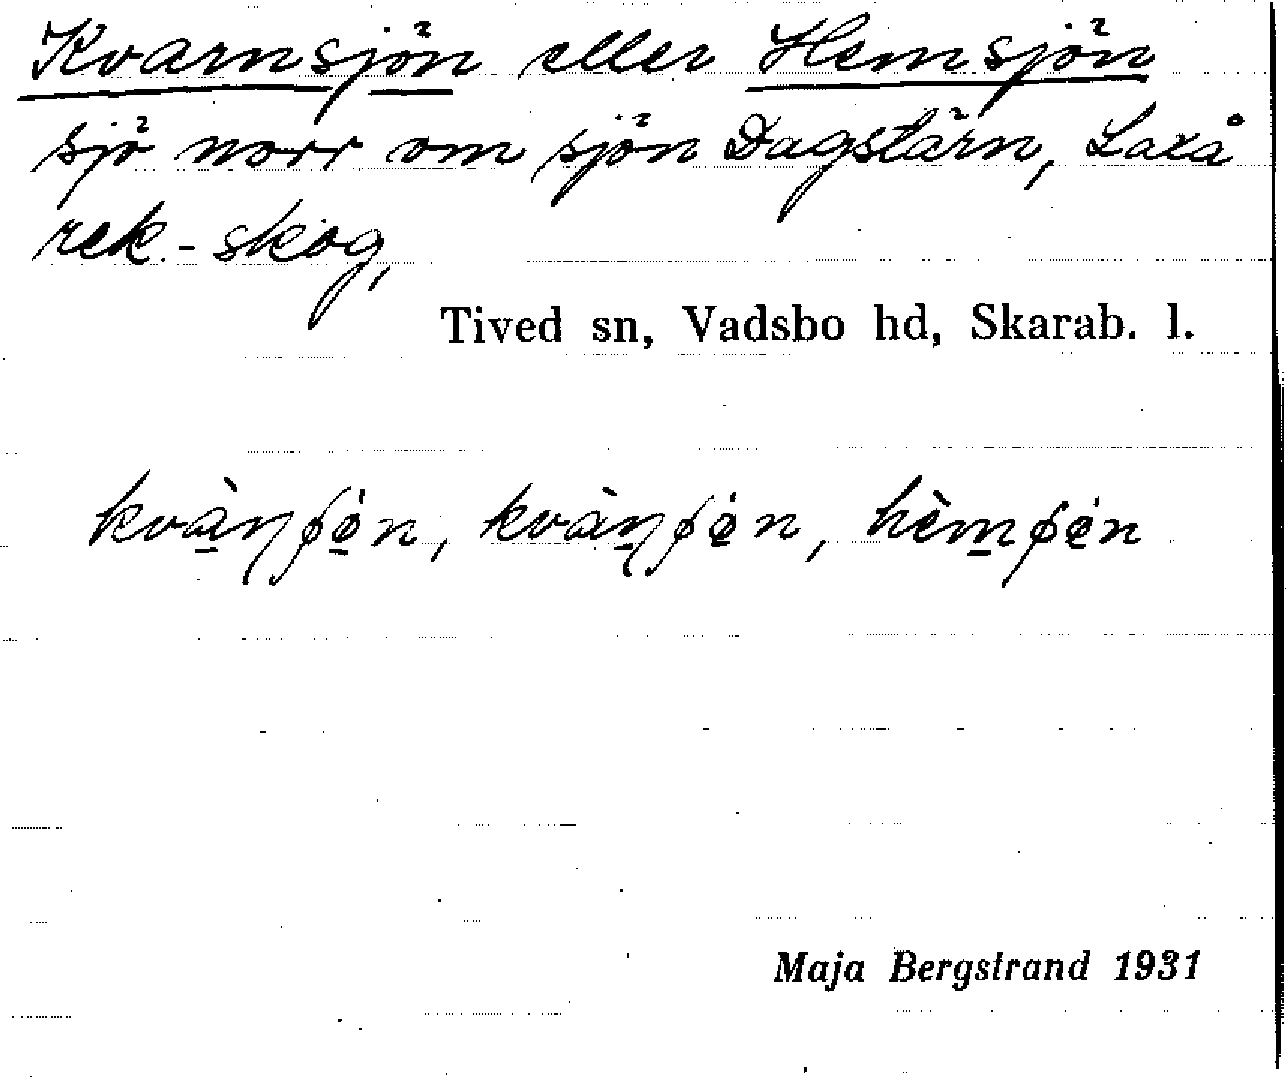 Kvarnsjön eller Hemsjön
sjö norr om sjön Dagstärn, Laxå
rek.-skog,
Tived sn, Vadsbo hd, Skarab. l.
kvàŋʃø̀n, kvàŋʃø̀n, hèmʃø̀n
Maja Bergstrand 1931